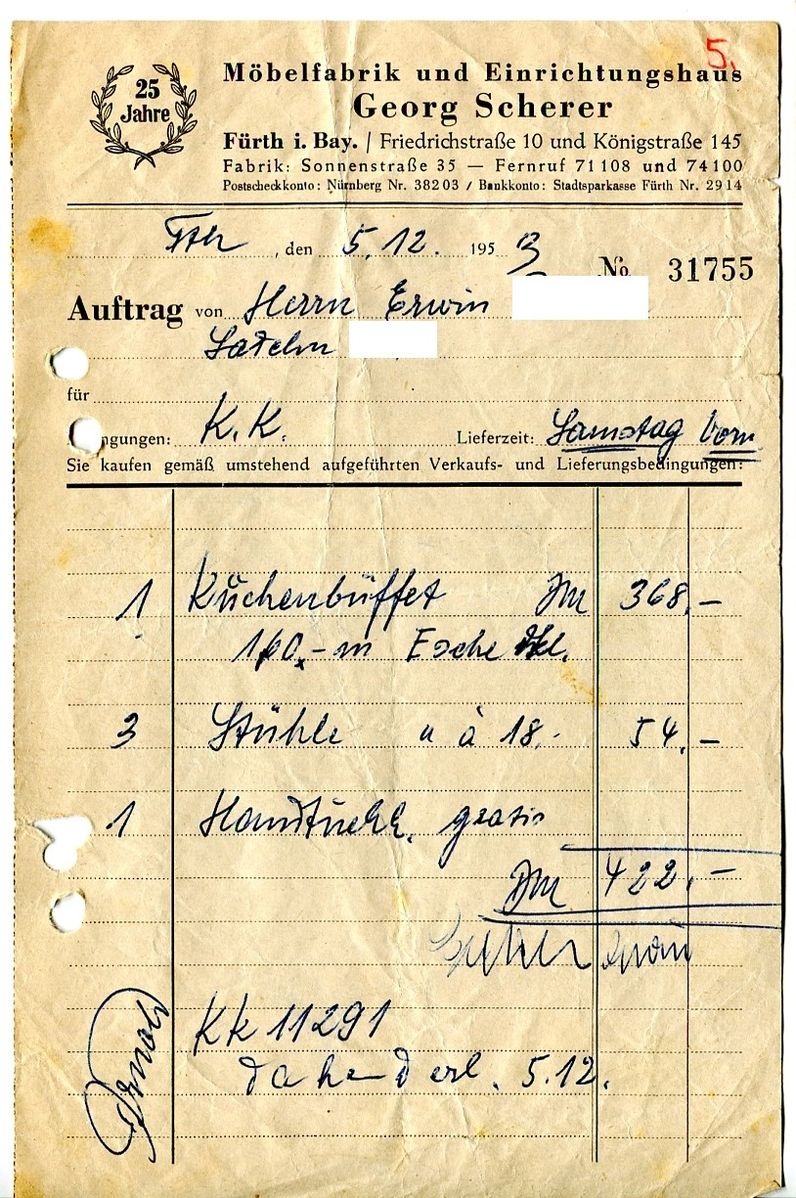 5.
25
Jahre
Möbelfabrik und Einrichtungshaus
Georg Scherer
Fürth i. Bay. / Friedrichstraße 10 und Königstraße 145
Fabrik: Sonnenstraße 35 — Fernruf 71108 und 74100
Postscheckkonto: Nürnberg Nr. 38203 / Bankkonto: Stadtsparkasse Fürth Nr. 2914
, den 5.12. 1953
No. 31755
Auftrag von Herrn Erwin
für
ngungen: K.K. Lieferzeit: Samstag Vorm
Sie kaufen gemäß umstehend aufgeführten Verkaufs- und Lieferungsbedingungen:
1 Küchenbüffet DM 368,-
Esche
3 Stühle " à 18.- 54,-
1 gratis
DM 422,-
KK 11291
erl. 5.12.